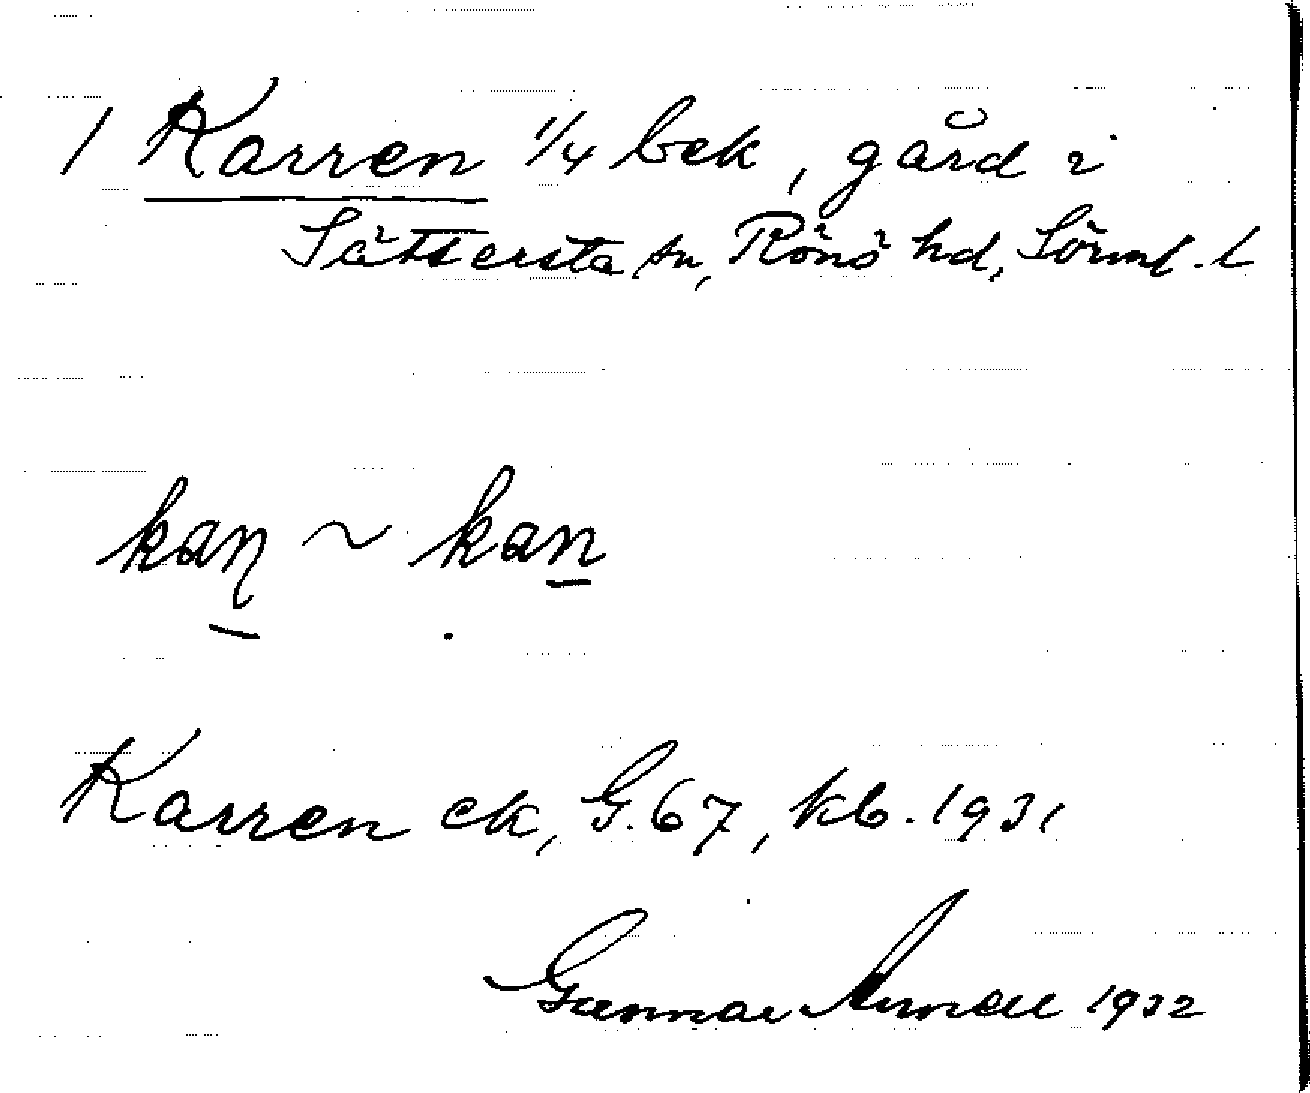 1 Karren 1/4 bek, gård i
Sättersta sn, Rönö hd, Sörml. l
kaɳ ~ kan
Karren ek, G. 67, kb. 1931
Gunnar Arnell 1932